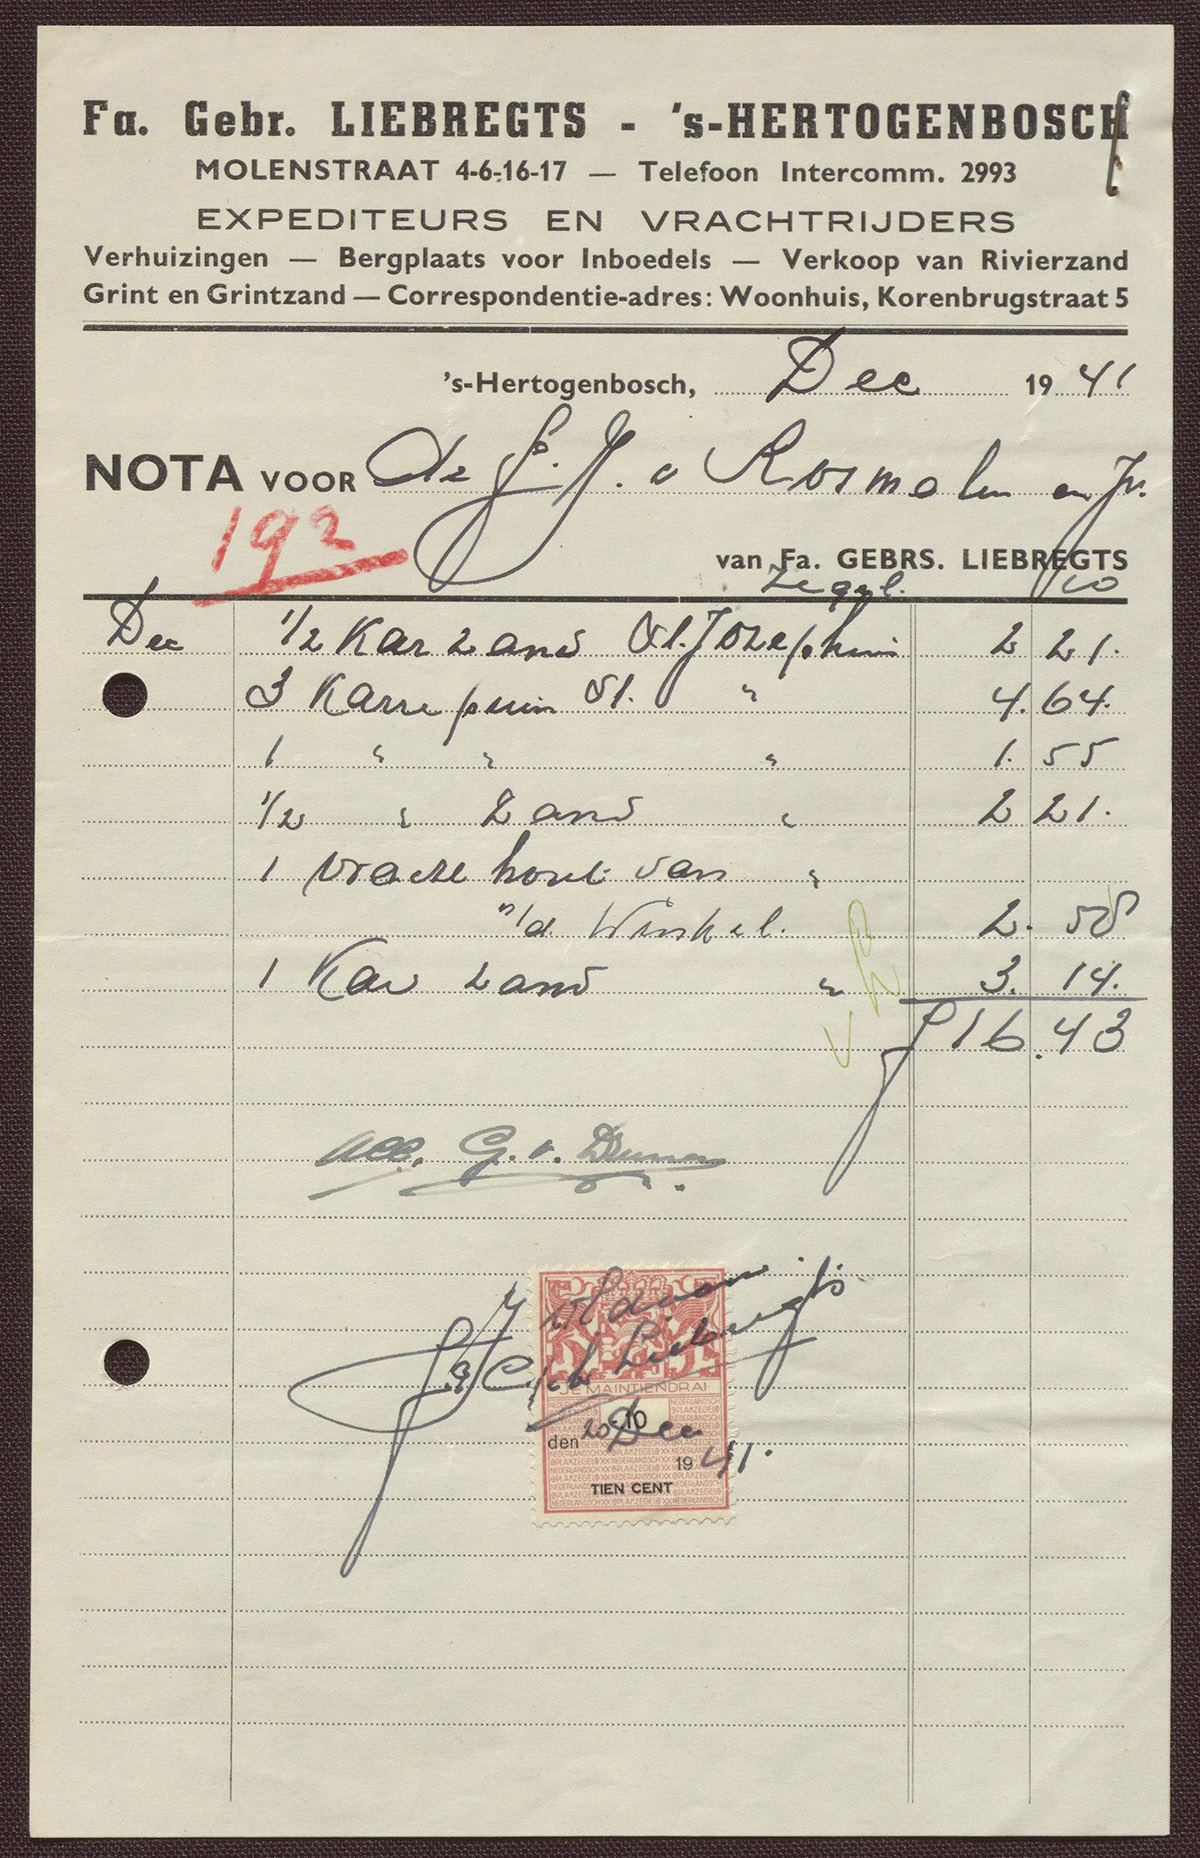 Fa. Gebr. LIEBREGTS - 's-HERTOGENBOSCH
MOLENSTRAAT 4-6-16-17 — Telefoon Intercomm. 2993
EXPEDITEURS EN VRACHTRIJDERS
Verhuizingen — Bergplaats voor Inboedels — Verkoop van Rivierzand
Grint en Grintzand — Correspondentie-adres: Woonhuis, Korenbrugstraat 5
's-Hertogenbosch, Dec 19 41
NOTA VOOR de v Rosmalen en
192
van Fa. GEBRS. LIEBREGTS
Zegel. 10
Dec 1/2 Kar Zand St. Joseph 2 21.
3 Karre puin St. " 4. 64.
1 " " " 1. 55
1/2 " Zand " 2 21.
1 vracht hout van "
n/d Winkel. 2. 58
1 Kar Zand " 3. 14.
f 16.43
acc. G. v.
Voldaan
Liebregts
JE MAINTIENDRAI
10
den 20 Dec
19 41.
TIEN CENT